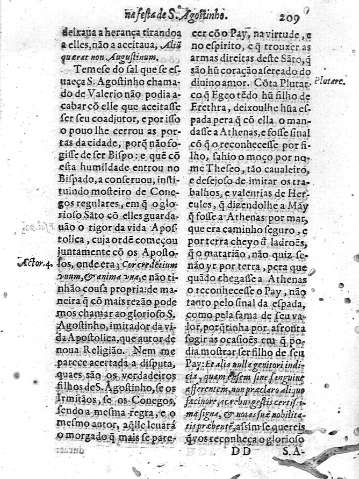 na festa de S. Agostinho.
209
deixaua a herança tirandoa
a elles, não a aceitaua, Aliũ
quærat non Augustinum.
Temese do sal que se es-
uaeça S. Agostinho chama-
do de Valerio não podia a-
cabar cõ elle que aceitasse
ser seu coadjutor, e por isso
o pouo lhe cerrou as por-
tas da cidade, porq̃ não fo-
gisse de ser Bispo: e que cõ
esta humildade entrou no
Bispado, a conseruou, insti-
tuindo mosteiro de Cone-
gos regulares, em q̃ o glo-
rioso Sãto cõ elles guarda-
uão o rigor da vida Apos-
tolica, cuja ordẽ começou
juntamente cõ os Aposto-
los, onde era: Cor credẽtium
vnum, & anima vna, e não ti-
nhão cousa propria: de ma-
neira q̃ cõ mais rezão pode
mos chamar ao glorioso S.
Agostinho, imitador da vi-
da Apostolica, que autor de
noua Religião. Nem me
parece acertada a disputa,
quaes são os verdadeiros
filhos de S. Agostinho, se os
Irmitãos, se os Conegos,
sendo a mesma regra, e o
mesmo autor, aq̃lle leuará
o morgado q̃ mais se pare-
Actor. 4.
cer cõ o Pay, na virtude, e
no espirito, e q̃ trouxer as
armas direitas deste Sãto, q̃
são hũ coração asereado do
diuino amor. Cõta Plutar-
co q̃ Egeo tẽdo hũ filho de
Erethra, deixoulhe hũa es-
pada pera q̃ cõ ella o man-
dasse a Athenas, e fosse sinal
cõ q̃ o reconhecesse por fi-
lho, sahio o moço por no-
me Theseo, tão caualeiro,
e desejoso de imitar os tra-
balhos, e valentias de Her-
cules, q̃ dizendolhe a Mãy
q̃ fosse a Athenas por mar,
que era caminho seguro, e
por terra cheyo de ladroẽs,
q̃ o matarião, não quiz se-
não yr por terra, pera que
quãdo chegasse a Athenas
o reconhecesse o Pay, não
tanto pelo sinal da espada,
como pela fama de seu va-
lor, porq̃ tinha por afronta
fogir as ocasioẽs em q̃ po-
dia mostrar ser filho de seu
Pay: Et alio nulla genitori indi-
cia, quam ensem sine sanguine
afferentem, non præclaro aliquo
facinore, ac rebus gestis certissi-
ma signa, & notas suæ nobilita-
tis præbentẽ, assim se quereis
q̃ vos reconheça o glorioso
Plutarc.
D D
S. A-